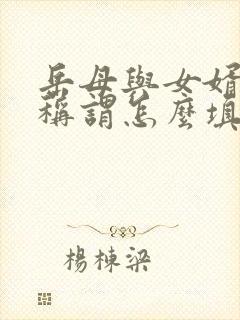 岳母與女婿
稱謂怎麼填
楊棟梁